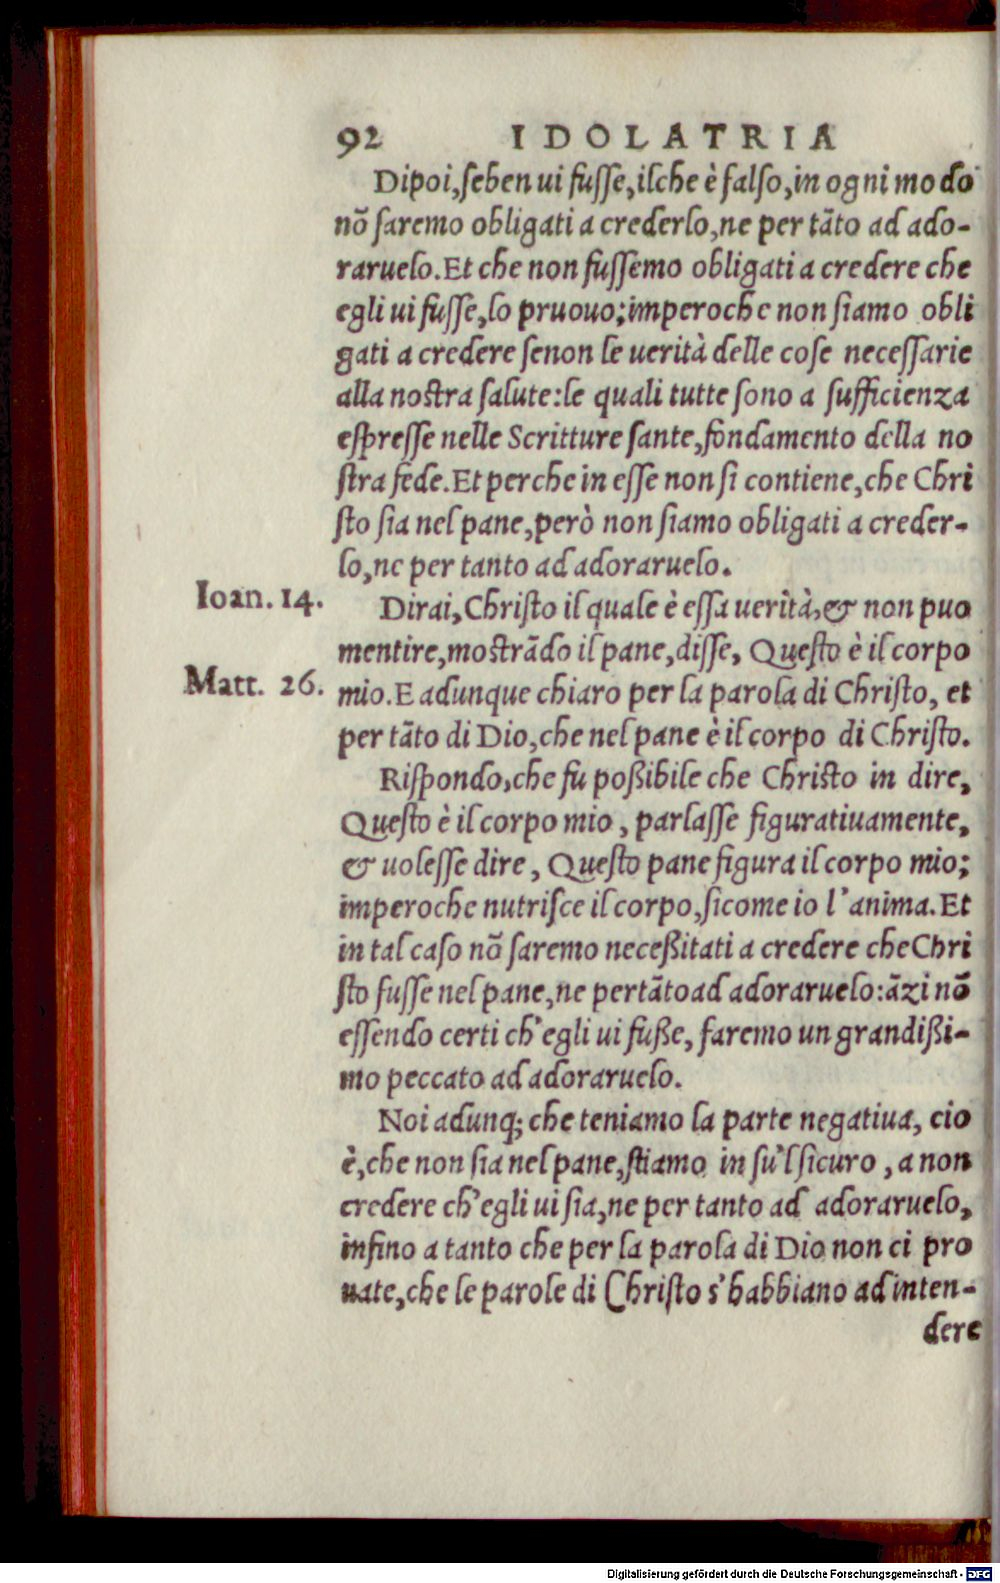 92 IDOLATRIA
Dipoi, ſeben ui fuſſe, ilche è falſo, in ogni modo
nō ſaremo obligati a crederlo, ne per tāto ad ado-
raruelo. Et che non fuſſemo obligati a credere che
egli ui fuſſe, lo pruouo; imperoche non ſiamo obli
gati a credere ſenon le uerità delle coſe neceſſarie
alla noſtra ſalute: le quali tutte ſono a ſufficienza
eſpreſſe nelle Scritture ſante, fondamento della no
ſtra fede. Et perche in eſſe non ſi contiene, che Chri
ſto ſia nel pane, però non ſiamo obligati a creder-
lo, ne per tanto ad adoraruelo.
Ioan. 14.
Dirai, Chriſto il quale è eſſa uerità, & non puo
mentire, moſtrādo il pane, diſſe, Queſto è il corpo
Matt. 26.
mio. E adunque chiaro per la parola di Chriſto, et
per tāto di Dio, che nel pane è il corpo di Chriſto.
Riſpondo, che fu poßibile che Chriſto in dire,
Queſto è il corpo mio, parlaſſe figuratiuamente,
& uoleſſe dire, Queſto pane figura il corpo mio;
imperoche nutriſce il corpo, ſicome io l'anima. Et
in tal caſo nō ſaremo neceßitati a credere che Chri
ſto fuſſe nel pane, ne pertāto ad adoraruelo: āzi nō
eſſendo certi ch'egli ui fuße, faremo un grandißi-
mo peccato ad adoraruelo.
Noi adunq; che teniamo la parte negatiua, cio
è, che non ſia nel pane, ſtiamo in ſu'l ſicuro, a non
credere ch'egli ui ſia, ne per tanto ad adoraruelo,
infino a tanto che per la parola di Dio non ci pro
uate, che le parole di Chriſto s'habbiano ad inten-
dere
Digitalisierung gefördert durch die Deutsche Forschungsgemeinschaft - DFG